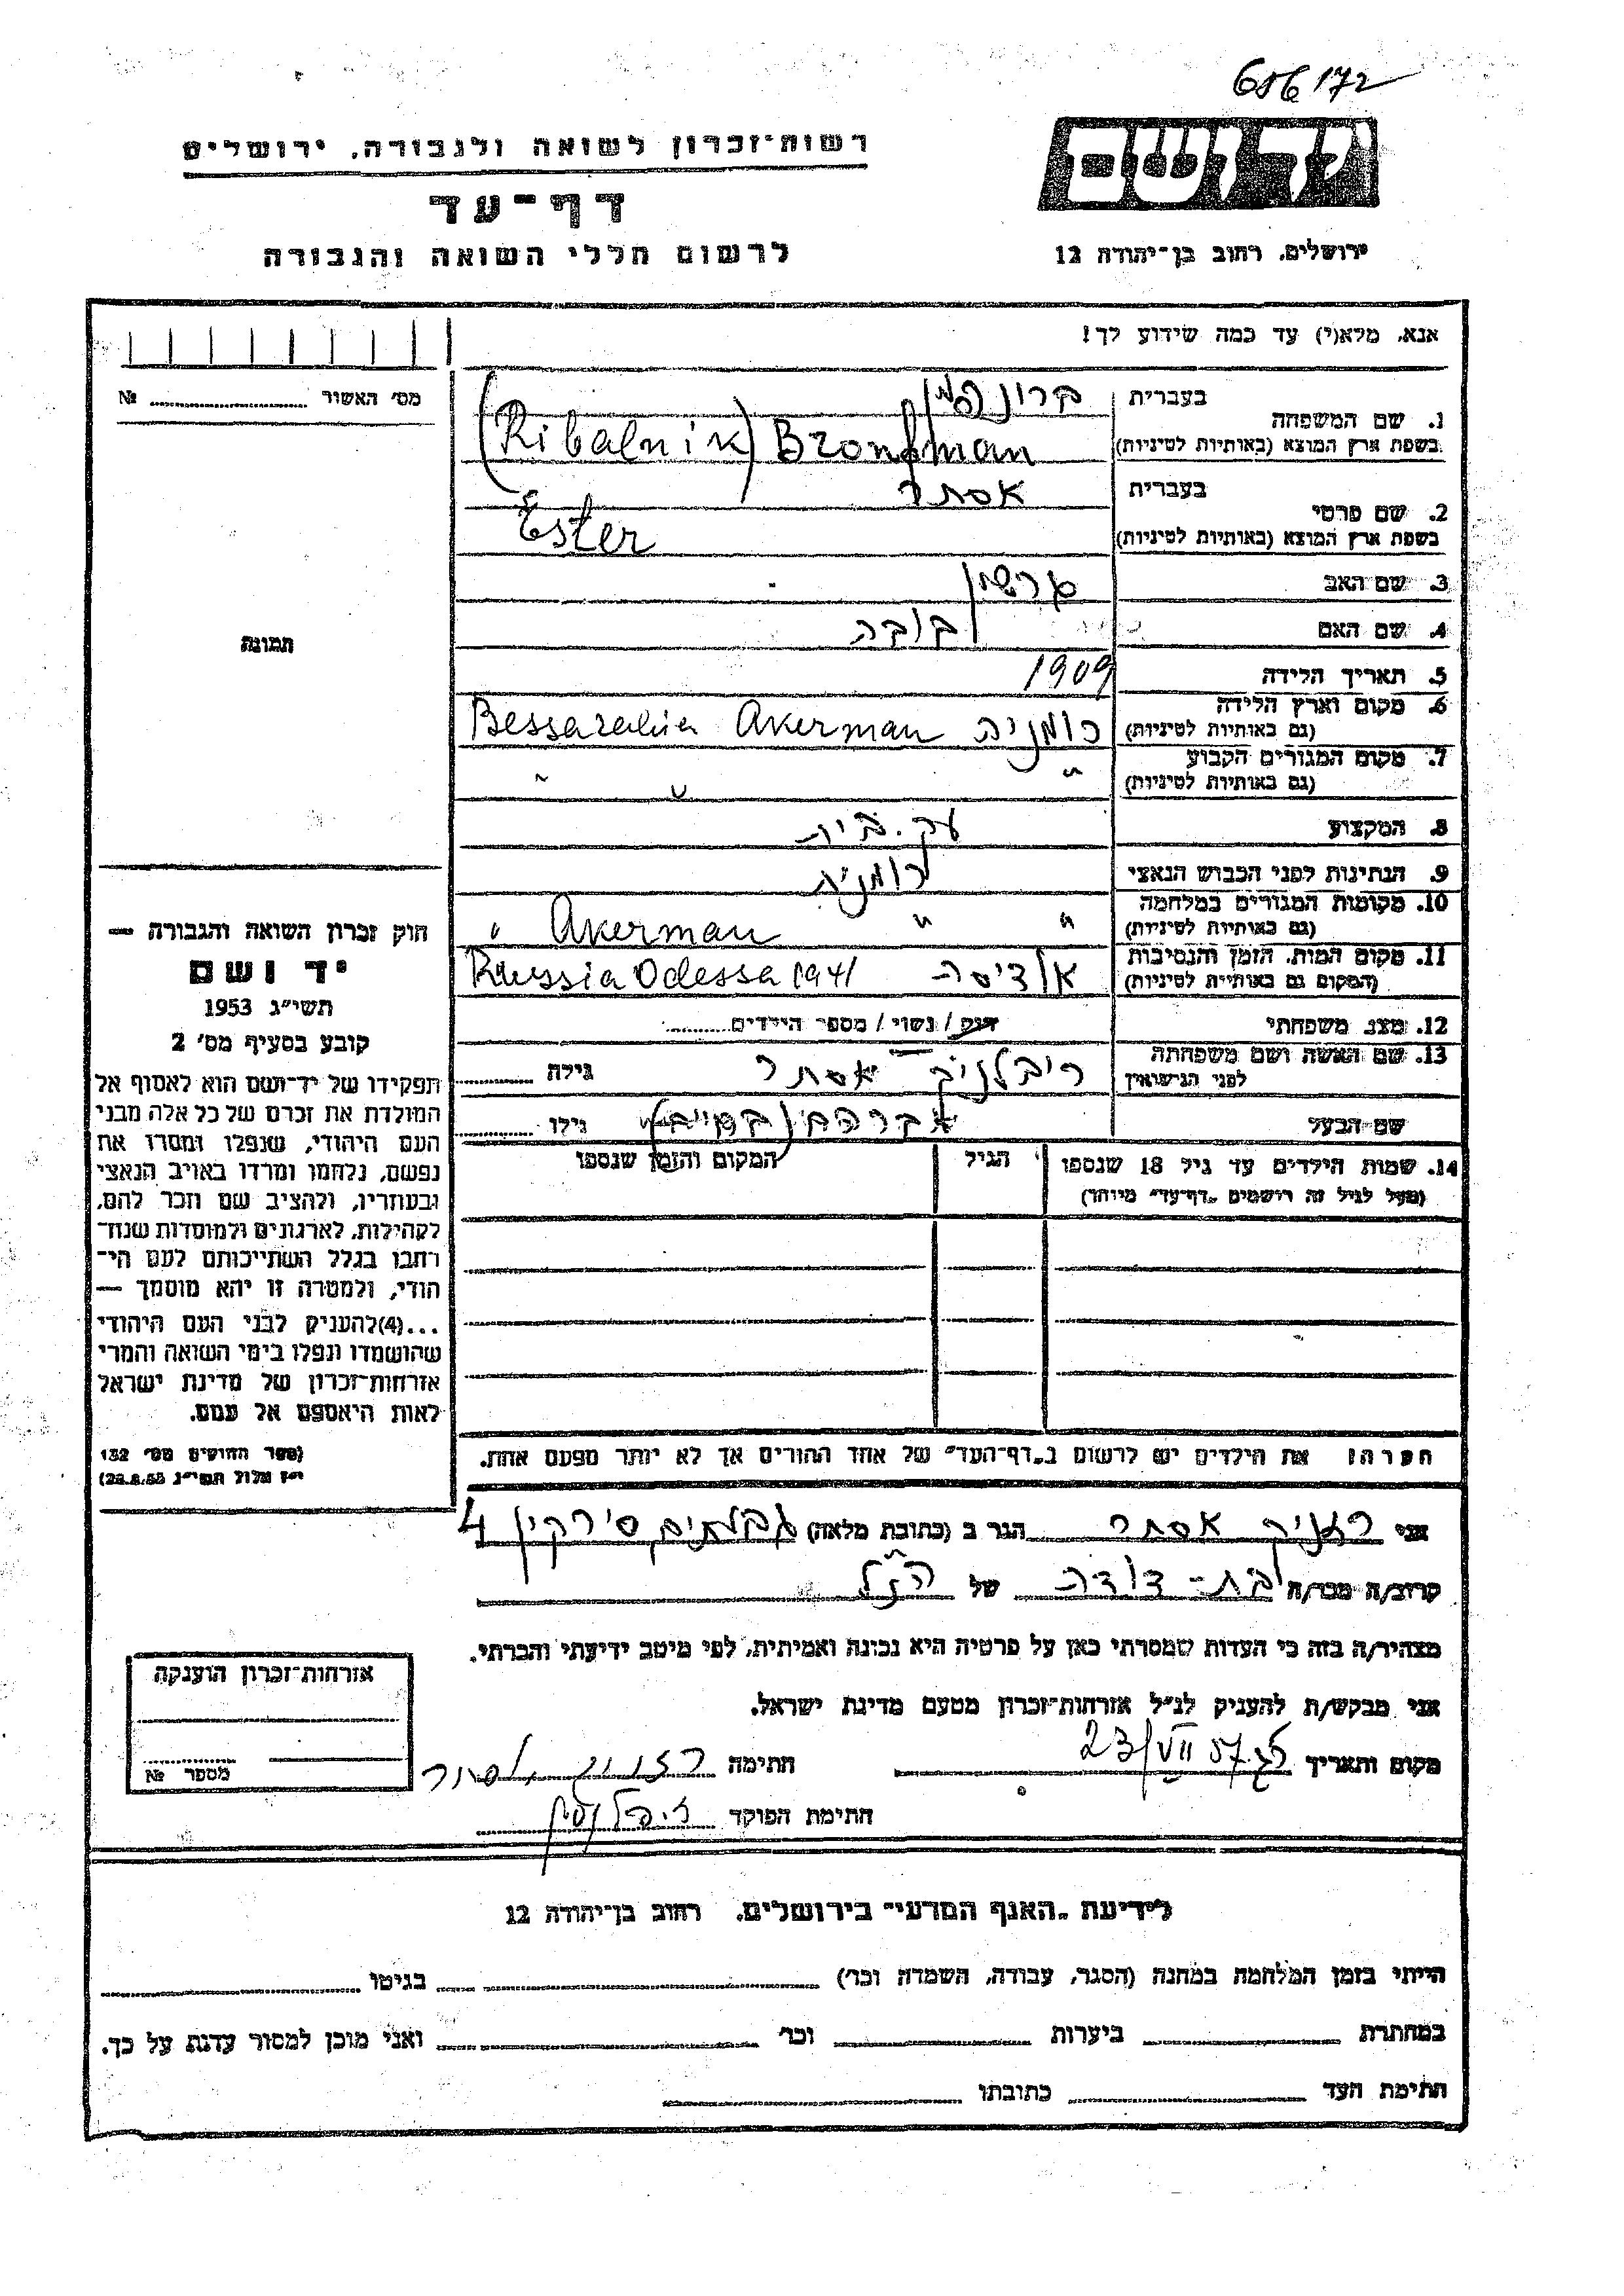 686172
רשות־זכרון לשואה ולגבורה, ירושלים
דף־עד
לרשום חללי השואה והגבורה
יד ושם
ירושלים, רחוב בן־יהודה 12
אנא, מלא(י) עד כמה שידוע לך!
מס׳ האשור № 
תמונה
חוק זכרון השואה והגבורה —
יד ושם
תשי״ג 1953
קובע בסעיף מס׳ 2
תפקידו של יד־ושם הוא לאסוף אל
המולדת את זכרם של כל אלה מבני
העם היהודי, שנפלו ומסרו את
נפשם, נלחמו ומרדו באויב הנאצי
ובעוזריו, ולהציב שם וזכר להם,
לקהילות, לארגונים ולמוסדות שנח־
רחבו בגלל השתייכותם לעם הי־
הודי, ולמטרה זו יהא מוסמך —
...(4)להעניק לבני העם היהודי
שהושמדו ונפלו בימי השואה והמרי
אזרחות־זכרון של מדינת ישראל
לאות היאספם אל עמם.
(ספר החוקים מס׳ 132
י״ז אלול תשי״ג 28.8.53)
1. שם המשפחה בעברית ברונפמן
בשפת ארץ המוצא (באותיות לטיניות) (Ribalnik) Bronfman
2. שם פרטי בעברית אסתר
בשפת ארץ המוצא (באותיות לטיניות) Ester
3. שם האב גרשון
4. שם האם
5. תאריך הלידה 1909
6. מקום וארץ הלידה (גם באותיות לטיניות) רומניה Akerman Bessarabia
7. מקום המגורים הקבוע (גם באותיות לטיניות) " " "
8. המקצוע עק. בית
9. הנתינות לפני הכבוש הנאצי רומניה
10. מקומות המגורים במלחמה (גם באותיות לטיניות) " " Akerman "
11. מקום המות, הזמן והנסיבות (המקום גם באותיות לטיניות) אודיסה Russia Odessa 1941
12. מצב משפחתי רווק / נשוי / מספר הילדים
13. שם האשה ושם משפחתה לפני הנישואין ריבלניק אסתר גילה
שם הבעל אברהם גילו
14. שמות הילדים עד גיל 18 שנספו הגיל המקום והזמן שנספו
(מעל לגיל זה רושמים „דף־עד״ מיוחד)
הערה: את הילדים יש לרשום ב„דף־העד״ של אחד ההורים אך לא יותר מפעם אחת.
אני רזניק אסתר הגר ב (כתובת מלאה) גבעתיים סירקין 4
קרוב/ה מכר/ה בת־דודה של הנ״ל
מצהיר/ה בזה כי העדות שמסרתי כאן על פרטיה היא נכונה ואמיתית, לפי מיטב ידיעתי והכרתי.
אני מבקש/ת להעניק לנ״ל אזרחות־זכרון מטעם מדינת ישראל.
מקום ותאריך 23/VII 57 חתימה רזניק אסתר
חתימת הפוקד
אזרחות־זכרון הוענקה
מספר №
לידיעת „האגף המדעי״ בירושלים, רחוב בן־יהודה 12
הייתי בזמן המלחמה במחנה (הסגר, עבודה, השמדה וכו׳) בגיטו
במחתרת ביערות וכו׳ ואני מוכן למסור עדות על כך.
חתימת העד כתובתו